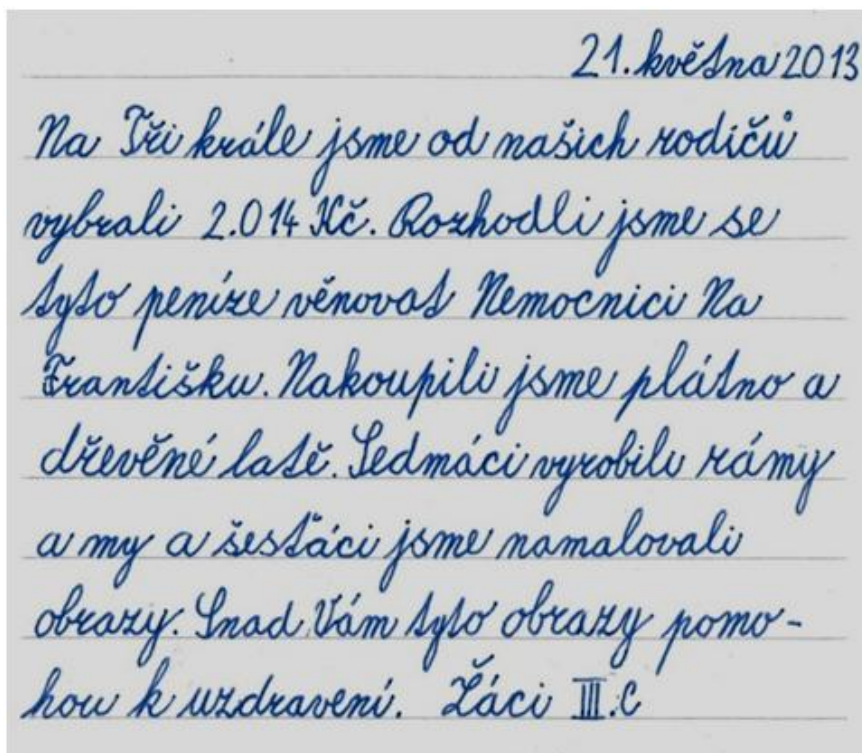 21. května 2013
Na Tři krále jsme od našich rodičů
vybrali 2.014 Kč. Rozhodli jsme se
tyto peníze věnovat Nemocnici Na
Františku. Nakoupili jsme plátno a
dřevěné latě. Sedmáci vyrobili rámy
a my a šesťáci jsme namalovali
obrazy. Snad Vám tyto obrazy pomo-
hou k uzdravení. Žáci III.C